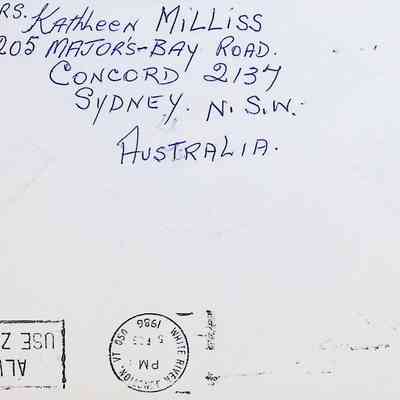 RS. Kathleen Milliss
205 MAJOR'S-BAY ROAD.
CONCORD 2137
SYDNEY. N.S.W.
AUSTRALIA.
WHITE RIVER JUNCTION, VT 050
PM
5 FEB
1986
ALW
USE Z